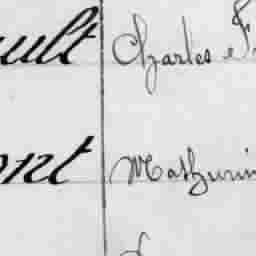 ult Charles F
ont Mathurin